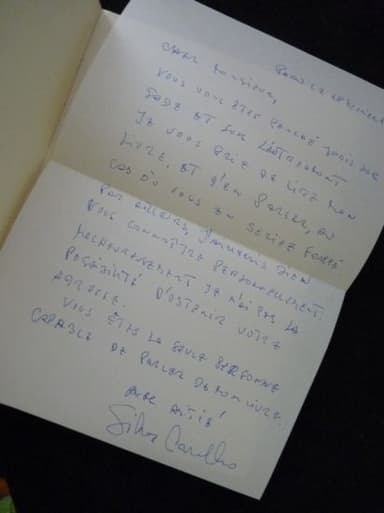 Cher Monsieur,
Vous vous êtes penché jadis sur
Sade et sur Lautréamont
Je vous prie de lire mon
livre, et d'en parler, au
cas où vous en seriez frappé
Par ailleurs, j'aimerais bien
vous connaître personnellement.
Malheureusement je n'ai pas la
possibilité d'obtenir votre
adresse.
Vous êtes la seule personne
capable de parler de mon livre
avec amitié!
Silva Carvalho